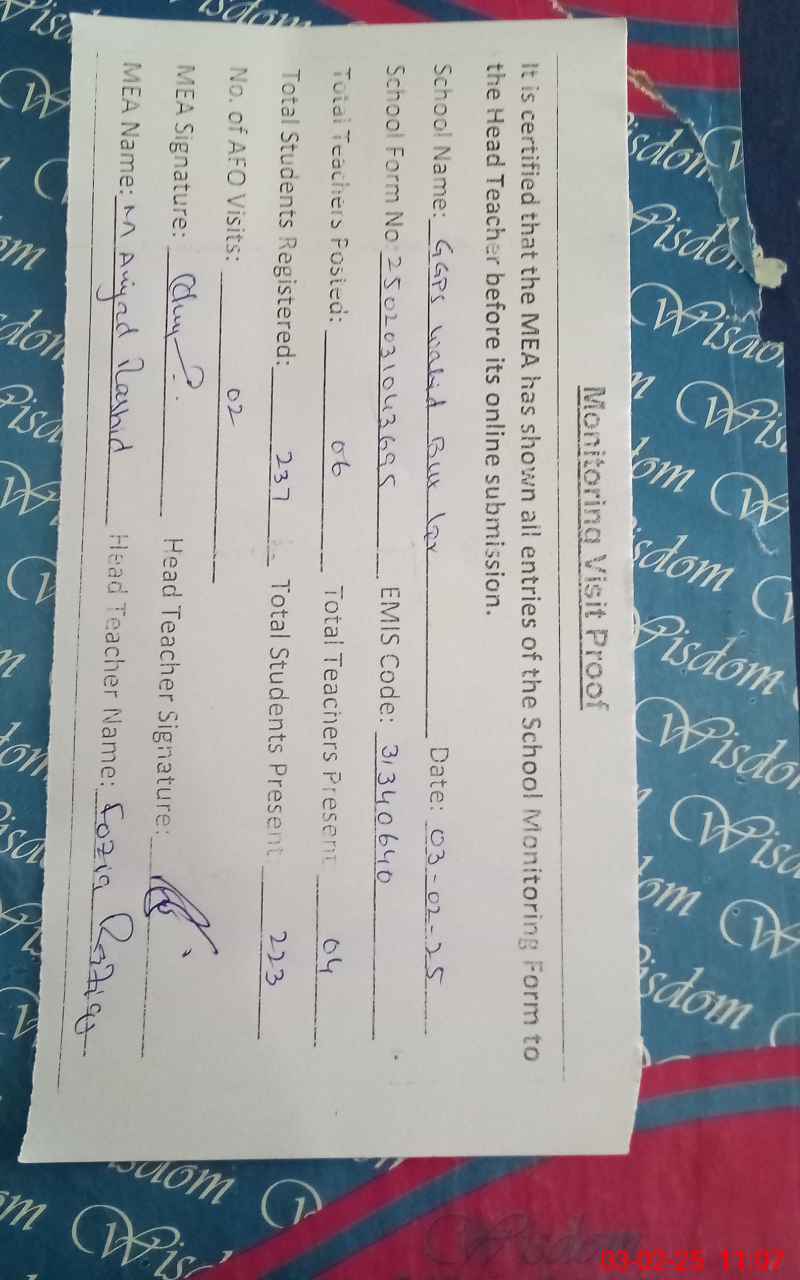 Monitoring Visit Proof
It is certified that the MEA has shown all entries of the School Monitoring Form to
the Head Teacher before its online submission.
School Name: GGPS Wahid Bux Date: 03-02-25
School Form No: 2502031043695 EMIS Code: 31340640
Total Teachers Posted: 06 Total Teachers Present: 04
Total Students Registered: 237 Total Students Present: 223
No. of AEO Visits: 02
MEA Signature: Head Teacher Signature:
MEA Name: M Amjad Rashid Head Teacher Name: Fozia Razia
Wisdom
03-02-25 11:07